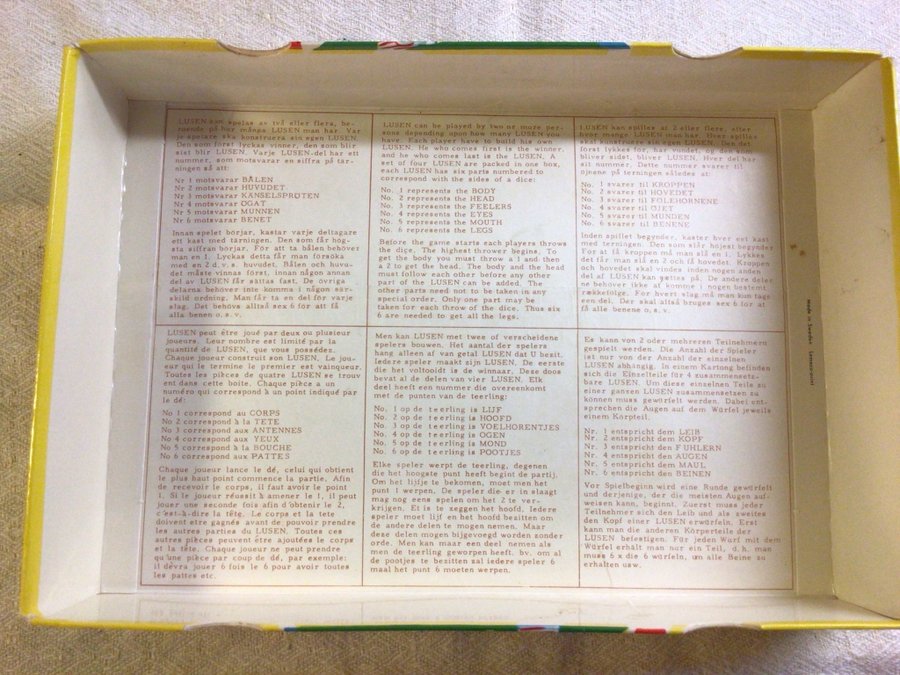 LUSEN kan spelas av två eller flera, be-
roende på hur många LUSEN man har. Var
je spelare ska konstruera sin egen LUSEN.
Den som först lyckas vinner, den som blir
sist blir LUSEN. Varje LUSEN-del har ett
nummer, som motsvarar en siffra på tär-
ningen så att:
Nr 1 motsvarar BÅLEN
Nr 2 motsvarar HUVUDET
Nr 3 motsvarar KÄNSELSPRÖTEN
Nr 4 motsvarar ÖGAT
Nr 5 motsvarar MUNNEN
Nr 6 motsvarar BENET
Innan spelet börjar, kastar varje deltagare
ett kast med tärningen. Den som får hög-
sta siffran börjar. För att ta bålen behöver
man en 1. Lyckas detta får man försöka
med en 2 d. v. s. huvudet. Bålen och huvu-
det måste vinnas först, innan någon annan
del av LUSEN får sättas fast. De övriga
delarna behöver inte komma i någon sär-
skild ordning. Man får ta en del för varje
slag. Det behövs alltså sex 6 för att få
alla benen o. s. v.
LUSEN can be played by two or more per-
sons depending upon how many LUSEN you
have. Each player have to build his own
LUSEN. He who comes first is the winner,
and he who comes last is the LUSEN. A
set of four LUSEN are packed in one box,
each LUSEN has six parts numbered to
correspond with the sides of a dice:
No. 1 represents the BODY
No. 2 represents the HEAD
No. 3 represents the FEELERS
No. 4 represents the EYES
No. 5 represents the MOUTH
No. 6 represents the LEGS
Before the game starts each players throws
the dice. The highest thrower begins. To
get the body you must throw a 1 and then
a 2 to get the head. The body and the head
must follow each other before any other
part of the LUSEN can be added. The
other parts need not to be taken in any
special order. Only one part may be
taken for each throw of the dice. Thus six
6 are needed to get all the legs.
LUSEN kan spilles af 2 eller flere, efter
hvor mange LUSEN man har. Hver spilles
skal konstruere sin egen LUSEN. Den det
først lykkes for, har vundet, og den som
bliver sidst, bliver LUSEN. Hver del har
sit nummer. Dette nummer svarer til
øjnene på terningen således at:
No. 1 svarer til KROPPEN
No. 2 svarer til HOVEDET
No. 3 svarer til FØLEHORNENE
No. 4 svarer til ØJET
No. 5 svarer til MUNDEN
No. 6 svarer til BENENE
Inden spillet begynder, kaster hver eet kast
med terningen. Den som slår højest begynder
For at få kroppen må man slå en 1. Lykkes
det får man slå en 2 og få hovedet. Kroppen
og hovedet skal vindes inden nogen anden
del af LUSEN kan sættes på. De andre deler
ne behøver ikke at komme i nogen bestemt
rækkefølge. For hvert slag må man kun tage
een del. Der skal altså bruges sex 6 for at
få alle benene o. s. v.
LUSEN peut être joué par deux ou plusieur
joueurs. Leur nombre est limité par la
quantité de LUSEN, que vous possédez.
Chaque joueur construit son LUSEN. Le jou-
eur qui le termine le premier est vainqueur.
Toutes les pièces de quatre LUSEN se trou
vent dans cette boite. Chaque pièce a un
numéro qui correspond à un point indiqué par
le dé:
No 1 correspond au CORPS
No 2 correspond à la TETE
No 3 correspond aux ANTENNES
No 4 correspond aux YEUX
No 5 correspond à la BOUCHE
No 6 correspond aux PATTES
Chaque joueur lance le dé, celui qui obtient
le plus haut point commence la partie. Afin
de recevoir le corps, il faut avoir le point
1. Si le joueur réussit à amener le 1, il peut
jouer une seconde fois afin d'obtenir le 2,
c'est-à-dire la tête. Le corps et la tete
doivent être gagnés avant de pouvoir prendre
les autres parties du LUSEN. Toutes ces
autres pièces peuvent être ajoutées le corps
et la tête. Chaque joueur ne peut prendre
qu'une pièce par coup de dé, par exemple:
il devra jouer 6 fois le 6 pour avoir toutes
les pattes etc.
Men kan LUSEN met twee of verscheidene
spelers bouwen. Het aantal der spelers
hang alleen af van getal LUSEN dat U bezit.
Iedere speler maakt sijn LUSEN. De eerste
die het voltooidt is de winnaar. Dese doos
bevat al de delen van vier LUSEN. Elk
deel heeft een nummer die overeenkomt
met de punten van de teerling:
No. 1 op de teerling is LIJF
No. 2 op de teerling is HOOFD
No. 3 op de teerling is VOELHORENTJES
No. 4 op de teerling is OGEN
No. 5 op de teerling is MOND
No. 6 op de teerling is POOTJES
Elke speler werpt de teerling, degenen
die het hoogste punt heeft begint de partij.
Om het lijfje te bekomen, moet men het
punt 1 werpen. De speler die er in slaagt
mag nog eens spelen om het 2 te ver-
krijgen. Et is te zeggen het hoofd. Iedere
speler moet lijf en het hoofd besitten om
de andere delen te mogen nemen. Maar
dese delen mogen bijgevoegd worden sonder
orde. Men kan maar een deel nemen als
men de teerling geworpen heeft. bv. om al
de pootjes te bezitten zal iedere speler 6
maal het punt 6 moeten werpen.
Es kann von 2 oder mehreren Teilnehmern
gespielt werden. Die Anzahl der Spieler
ist nur von der Anzahl der einzelnen
LUSEN abhängig. In einem Kartong befinden
sich die Einzelteile für 4 zusammensetz-
bare LUSEN. Um diese einzelnen Teile zu
einer ganzen LUSEN zusammensetzen zu
können muss gewürfelt werden. Dabei ent-
sprechen die Augen auf dem Würfel jeweils
einem Körpteil.
Nr. 1 entspricht dem LEIB
Nr. 2 entspricht dem KOPF
Nr. 3 entspricht den FÜHLERN
Nr. 4 entspricht den AUGEN
Nr. 5 entspricht dem MAUL
Nr. 6 entspricht den BEINEN
Vor Spielbeginn wird eine Runde gewürfelt
und derjenige, der die meisten Augen auf-
weisen kann, beginnt. Zuerst muss jeder
Teilnehmer sich den Leib und als zweites
den Kopf einer LUSEN erwürfeln. Erst
kann man die anderen Körperteile der
LUSEN befestigen. Für jeden Wurf mit dem
Würfel erhält man nur ein Teil, d. h. man
muss 6 x die 6 würfeln, um alle Beine zu
erhalten usw.
made in Sweden